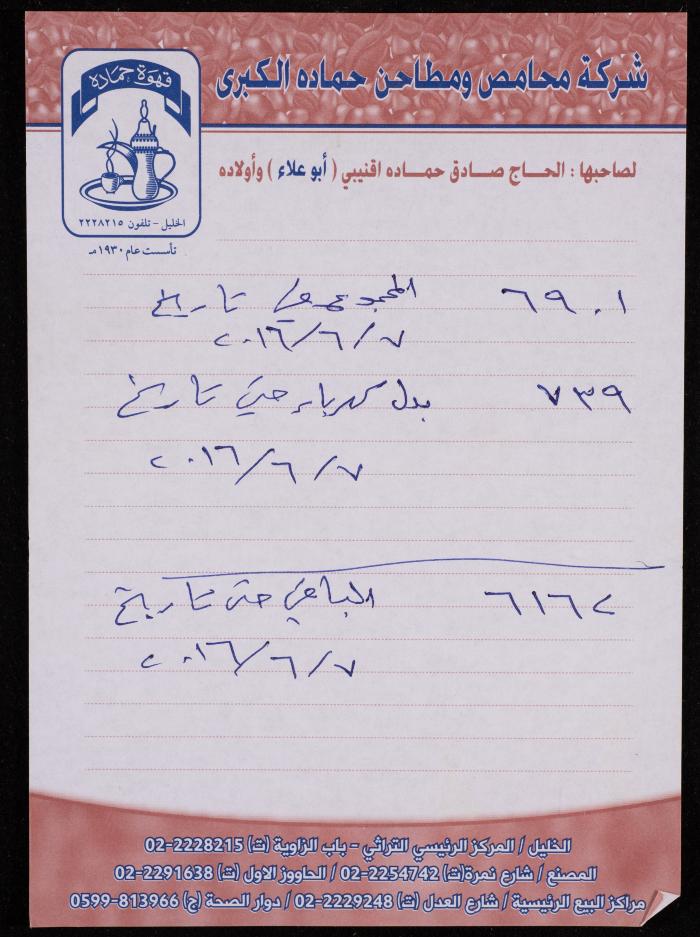 شركة محامص ومطاحن حماده الكبرى
قهوة حماده
الخليل - تلفون ٢٢٢٨٢١٥
تأسست عام ١٩٣٠مـ
لصاحبها : الحاج صادق حماده اقنيبي ( أبو علاء ) وأولاده
٦٩٠١ المجموع حتى تاريخ
٢٠١٦/٦/٧
٧٣٩ بدل كهرباء حتى تاريخ
٢٠١٦/٦/٧
٦١٦٢ الباقي حتى تاريخ
٢٠١٦/٦/٧
الخليل / المركز الرئيسي التراثي - باب الزاوية (ت) 02-2228215
المصنع / شارع نمرة(ت) 02-2254742 / الحاووز الاول (ت) 02-2291638
مراكز البيع الرئيسية / شارع العدل (ت) 02-2229248 / دوار الصحة (ج) 0599-813966